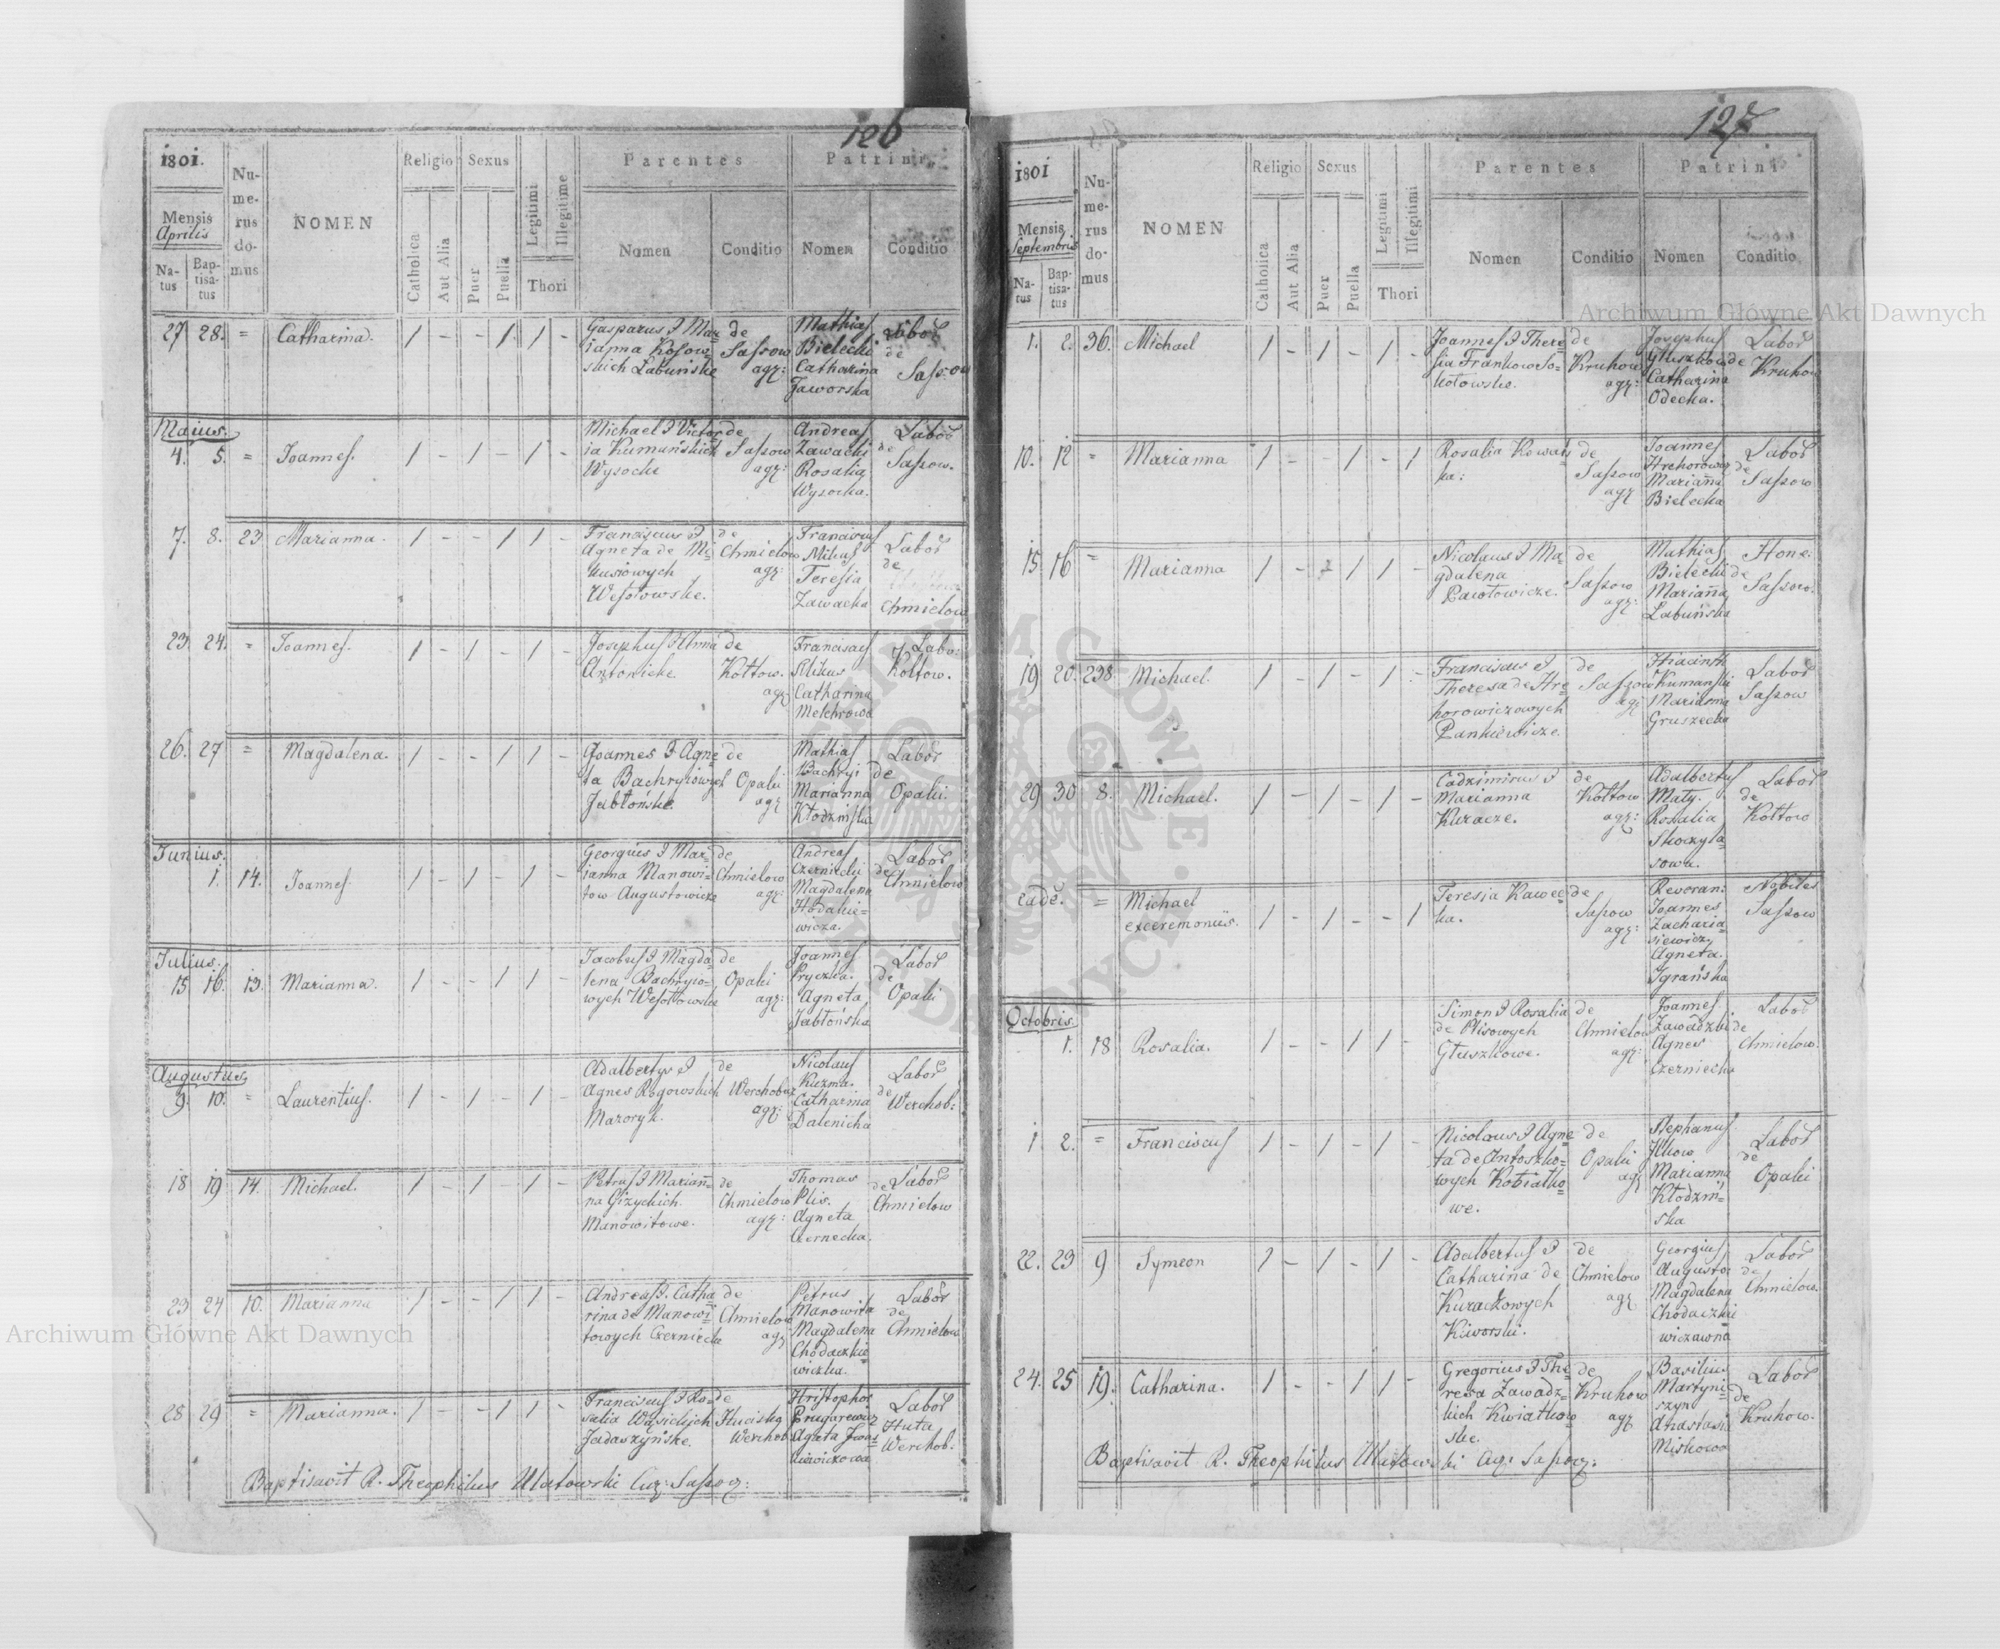 126
1801.
Numerus domus
NOMEN
Religio
Sexus
Parentes
Patrini
Mensis
Aprilis
Natus
Baptisatus
Catholica
Aut Alia
Puer
Puella
Legitimi
Illegitime
Thori
Nomen
Conditio
Nomen
Conditio
27 28. = Catharina. 1 - - 1 1 -
Gasparus & Mar=
ianna Kosow=
skich Labuńskie
de
Sassow
agr:
Mathias
Bielecki
Catharina
Jaworska
Labor
de
Sassow
Maius.
4. 5. = Joannes. 1 - 1 - 1 -
Michael & Victor
ia Kumańskich
Wysockie
de
Sassow
agr:
Andreas
Zawacki
Rosalia
Wysocka.
Labor
de
Sassow.
7. 8. 23 Marianna. 1 - - 1 1 -
Franciscus &
Agneta de Mi=
kusiowych
Wesołowskie.
de
Chmielow
agr:
Franciscus
Mikus
Teresia
Zawacka
Labor
de
Chmielow
23 24. = Joannes. 1 - 1 - 1 -
Josephus & Anna
Antonickie
de
Kołtow.
agr:
Franciscus
Mikus
Catharina
Melchrowa
Labo:
Kołtow.
26. 27 = Magdalena. 1 - - 1 1 -
Joannes & Agne=
ta Bachryiowych
Jabłońskie
de
Opaki
agr
Mathias
Bachryi
Marianna
Kłodzińska
Labor
de
Opaki.
Junius.
1. 14. Joannes. 1 - 1 - 1 -
Georgius & Mar=
ianna Manowi=
tow Augustowicze
de
Chmielow
agr:
Andreas
Czernicki
Magdalena
Hodakie=
wicza.
Labor
de
Chmielow
Julius.
15 16. 13. Marianna. 1 - - 1 1 -
Jacobus & Magda=
lena Bachryio=
wych Wesołowskie
de
Opaki
agr:
Joannes
Pryczka.
Agneta
Jabłońska
Labor
de
Opaki
Augustus
9. 10. = Laurentius. 1 - 1 - 1 -
Adalbertus &
Agnes Rogowskich
Mazoryk.
de
Werchobuz
agr:
Nicolaus
Kuzma.
Catharina
Dalenicha
Labor
de
Werchob:
18 19 14. Michael. 1 - 1 - 1 -
Petrus & Marian=
na Gizyckich.
Manowitowe.
de
Chmielow
agr:
Thomas
Plis.
Agneta
Czernecka.
de Labor
Chmielow
23 24 10. Marianna 1 - - 1 1 -
Andreas & Catha
rina de Manowi=
towych Czernicke
de
Chmielow
agr
Petrus
Manowita
Magdalena
Chodaczkie=
wiczka.
Labor
de
Chmielow
28 29 = Marianna. 1 - - 1 1 -
Franciscus & Ro=
salia Wąsickich
Jadaszyńskie.
de
Huciska
Werchob
Hristophor
Agata
Labor
Huta
Werchob.
Baptisavit R. Theophilus Ulatowski Cur: Sassov:
127
1801
Numerus domus
NOMEN
Religio
Sexus
Parentes
Patrini
Mensis
Septembris
Natus
Baptisatus
Catholica
Aut Alia
Puer
Puella
Legitimi
Illegitimi
Thori
Nomen
Conditio
Nomen
Conditio
1. 2. 36. Michael 1 - 1 - 1 -
Joannes & There=
sia Frankow So=
kołowskie.
de
Kruhow
agr:
Josephus
Głuszkow
Catharina
Odecka.
Labor
de
Kruhow
10. 12 = Marianna 1 - - 1 - 1
Rosalia Kowals
ka:
de
Sassow
agr
Joannes
Hrehorowicz
Marianna
Bielecka
Labor
de
Sassow
15. 16 = Marianna 1 - - 1 1 -
Nicolaus & Ma=
gdalena
Pawłowicze.
de
Sassow
agr:
Mathias
Bielecki
Marianna
Labuńska
Hone:
de
Sassow.
19 20. 238. Michael. 1 - 1 - 1 -
Franciscus &
Theresa de Hre=
horowiczowych
Pankiewicze.
de
Sassow
agr
Hiacinth
Kumanski
Marianna
Gruszecka
Labor
Sassow
29 30 8. Michael. 1 - 1 - 1 -
Cadzimirus &
Marianna
Kuracze.
de
Kołtow
agr:
Adalbertus
Maty.
Rosalia
Skoczyla=
sowa.
Labor
de
Kołtow
eadē. = Michael
exceremoniis. 1 - 1 - - 1
Teresia Kawec=
ka.
de
Sassow
agr:
Reveran:
Joannes
Zacharia=
siewicz
Agneta.
Igrańska
Nobiles
Sassow
Octobris.
1. 18 Rosalia. 1 - - 1 1 -
Simon & Rosalia
de Plisowych
Głuszkowe.
de
Chmielow
agr:
Joannes
Zawadzki
Agnes
Czerniecka
Labor
de
Chmielow.
1 2. = Franciscus 1 - 1 - 1 -
Nicolaus & Agne=
ta de Antoszko=
wych Kobiałko=
we.
de
Opaki
agr
Stephanus
Ilkow.
Marianna
Kłodziń=
ska
Labor
de
Opaki
22. 23 9 Symeon 1 - 1 - 1 -
Adalbertus &
Catharina de
Kuraczkowych
Kiworski.
de
Chmielow
agr
Georgius
Augusto:
Magdalena
Chodaczkie
wiczowna
Labor
de
Chmielow.
24. 25 19. Catharina. 1 - - 1 1 -
Gregorius & The=
resa Zawadz=
kich Kwiatkow=
skie.
de
Kruhow
agr
Basilius
Martyni=
szyn
Anastasia
Miskowa
Labor
de
Kruhow.
Baptisavit R. Theophilus Ulatowski Cur: Sassov:
Archiwum Główne Akt Dawnych
Archiwum Główne Akt Dawnych
ARCHIWUM GŁÓWNE AKT DAWNYCH